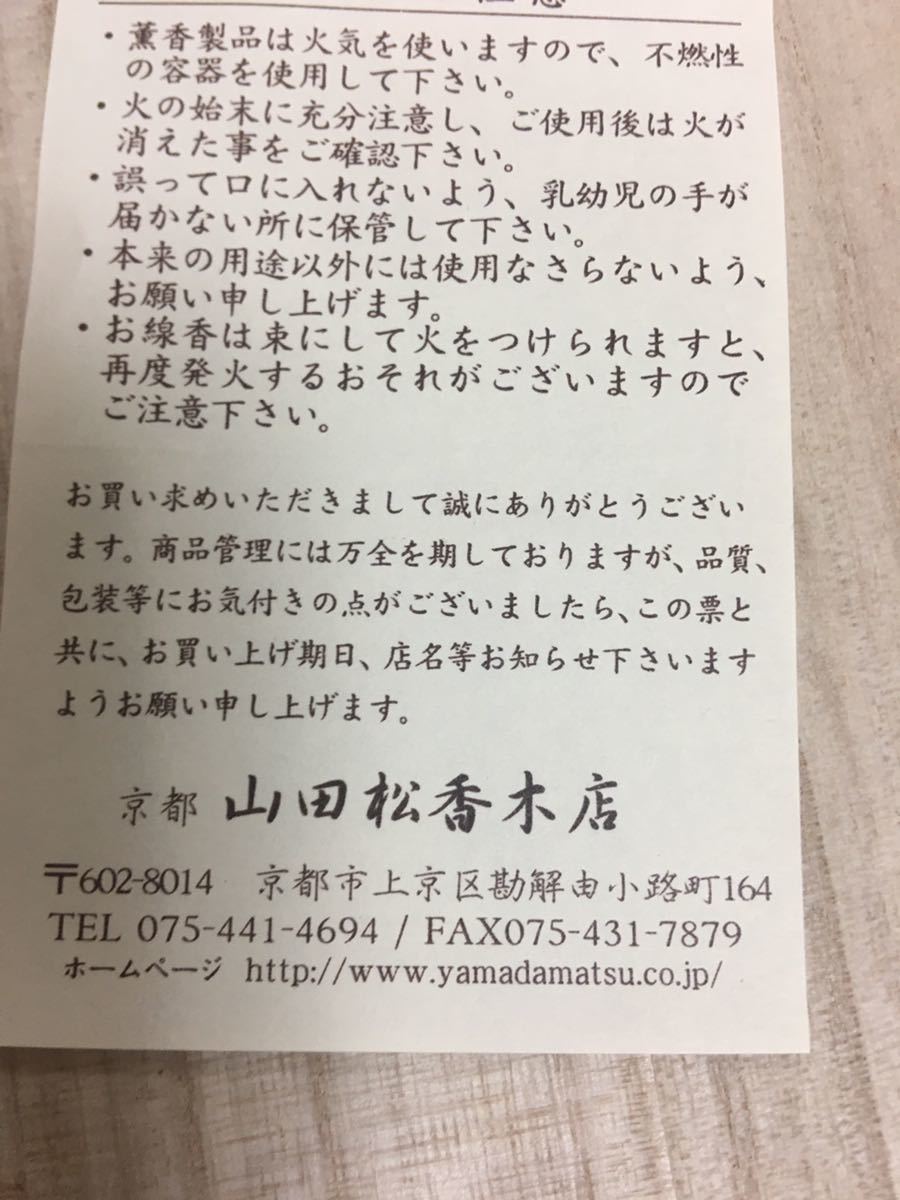 ・薫香製品は火気を使いますので、不燃性
の容器を使用して下さい。
・火の始末に充分注意し、ご使用後は火が
消えた事をご確認下さい。
・誤って口に入れないよう、乳幼児の手が
届かない所に保管して下さい。
・本来の用途以外には使用なさらないよう、
お願い申し上げます。
・お線香は束にして火をつけられますと、
再度発火するおそれがございますので
ご注意下さい。
お買い求めいただきまして誠にありがとうござい
ます。商品管理には万全を期しておりますが、品質、
包装等にお気付きの点がございましたら、この票と
共に、お買い上げ期日、店名等お知らせ下さいます
ようお願い申し上げます。
京都 山田松香木店
〒602-8014 京都市上京区勘解由小路町164
TEL 075-441-4694 / FAX075-431-7879
ホームページ http://www.yamadamatsu.co.jp/